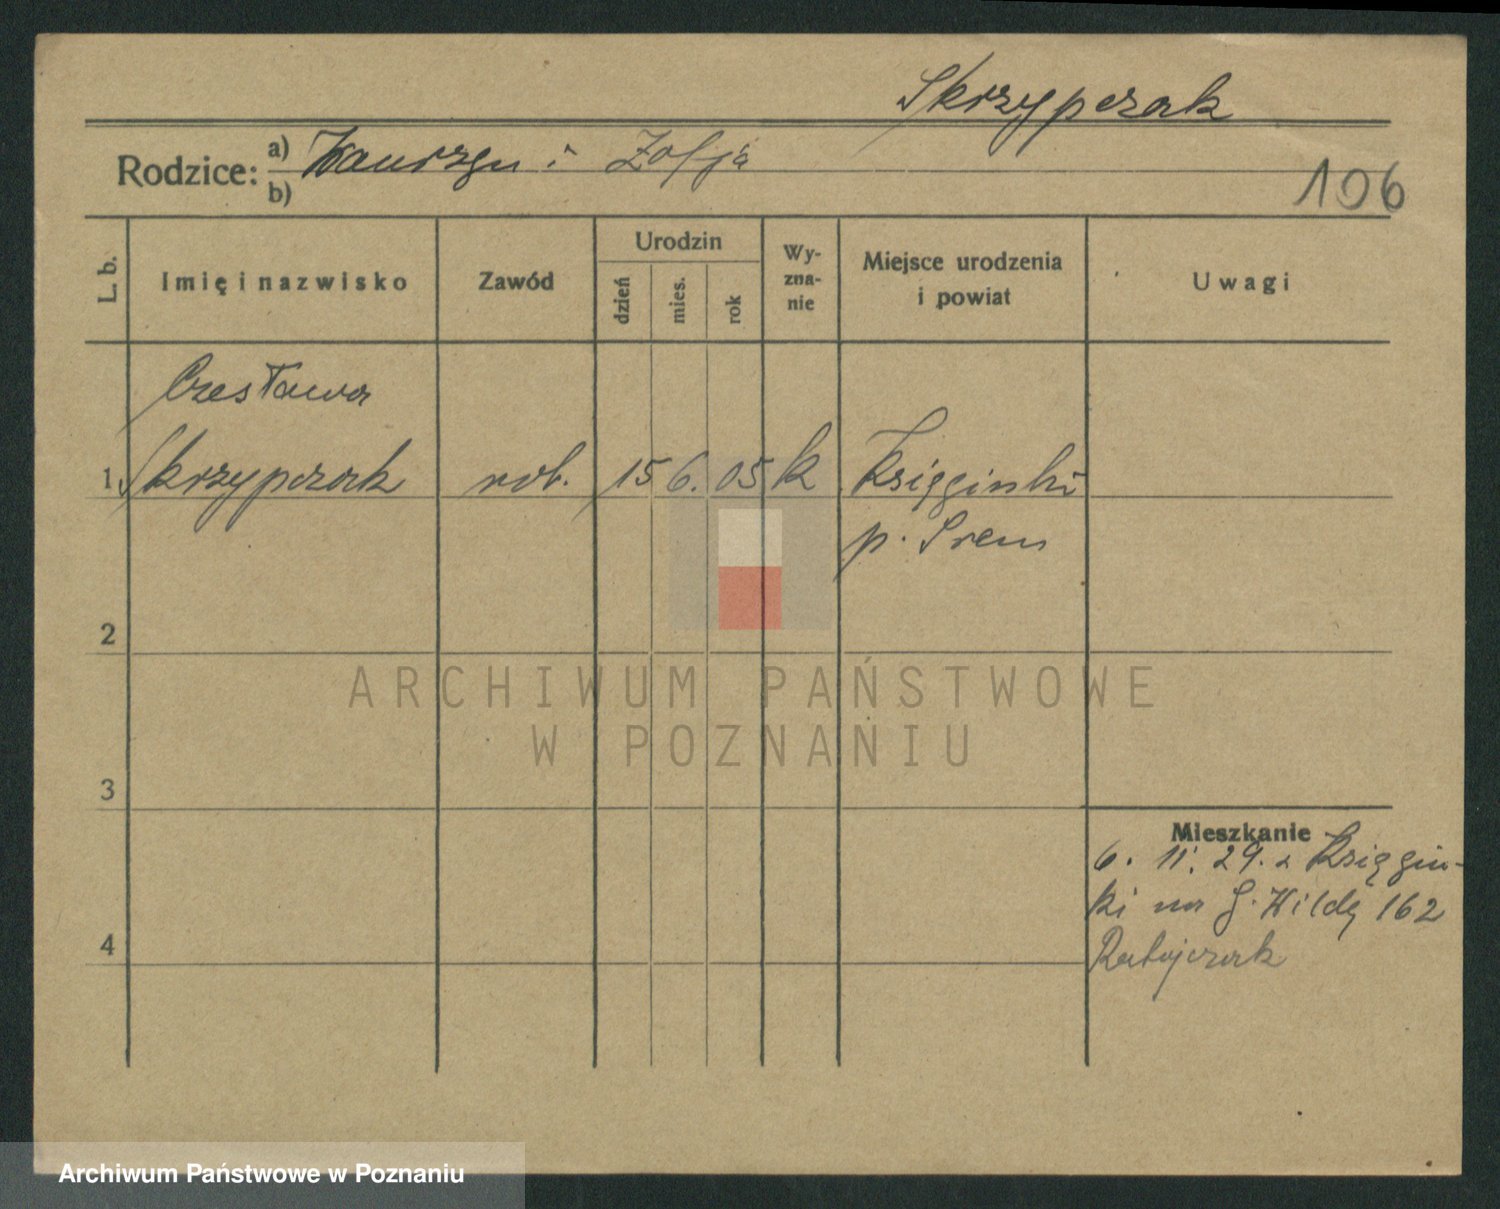 Skrzypczak
Rodzice: a) Wawrzyn i Zofja
b)
106
L. b.
Imię i nazwisko
Zawód
Urodzin
dzień
mies.
rok
Wy-
zna-
nie
Miejsce urodzenia
i powiat
Uwagi
Czesława
1 Skrzypczak rob. 15 6. 05 k Księginki
p. Srem
2
ARCHIWUM PAŃSTWOWE
W POZNANIU
3
Mieszkanie
6. 11. 29. z Księgin-
ki na G. Wildę 162
4
Ratajczak
Archiwum Państwowe w Poznaniu